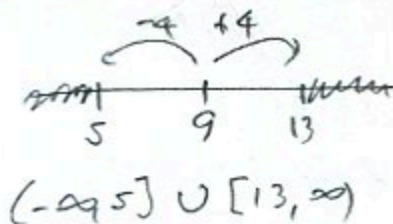 -4 +4
5 9 13
(-∞, 5] ∪ [13, ∞)